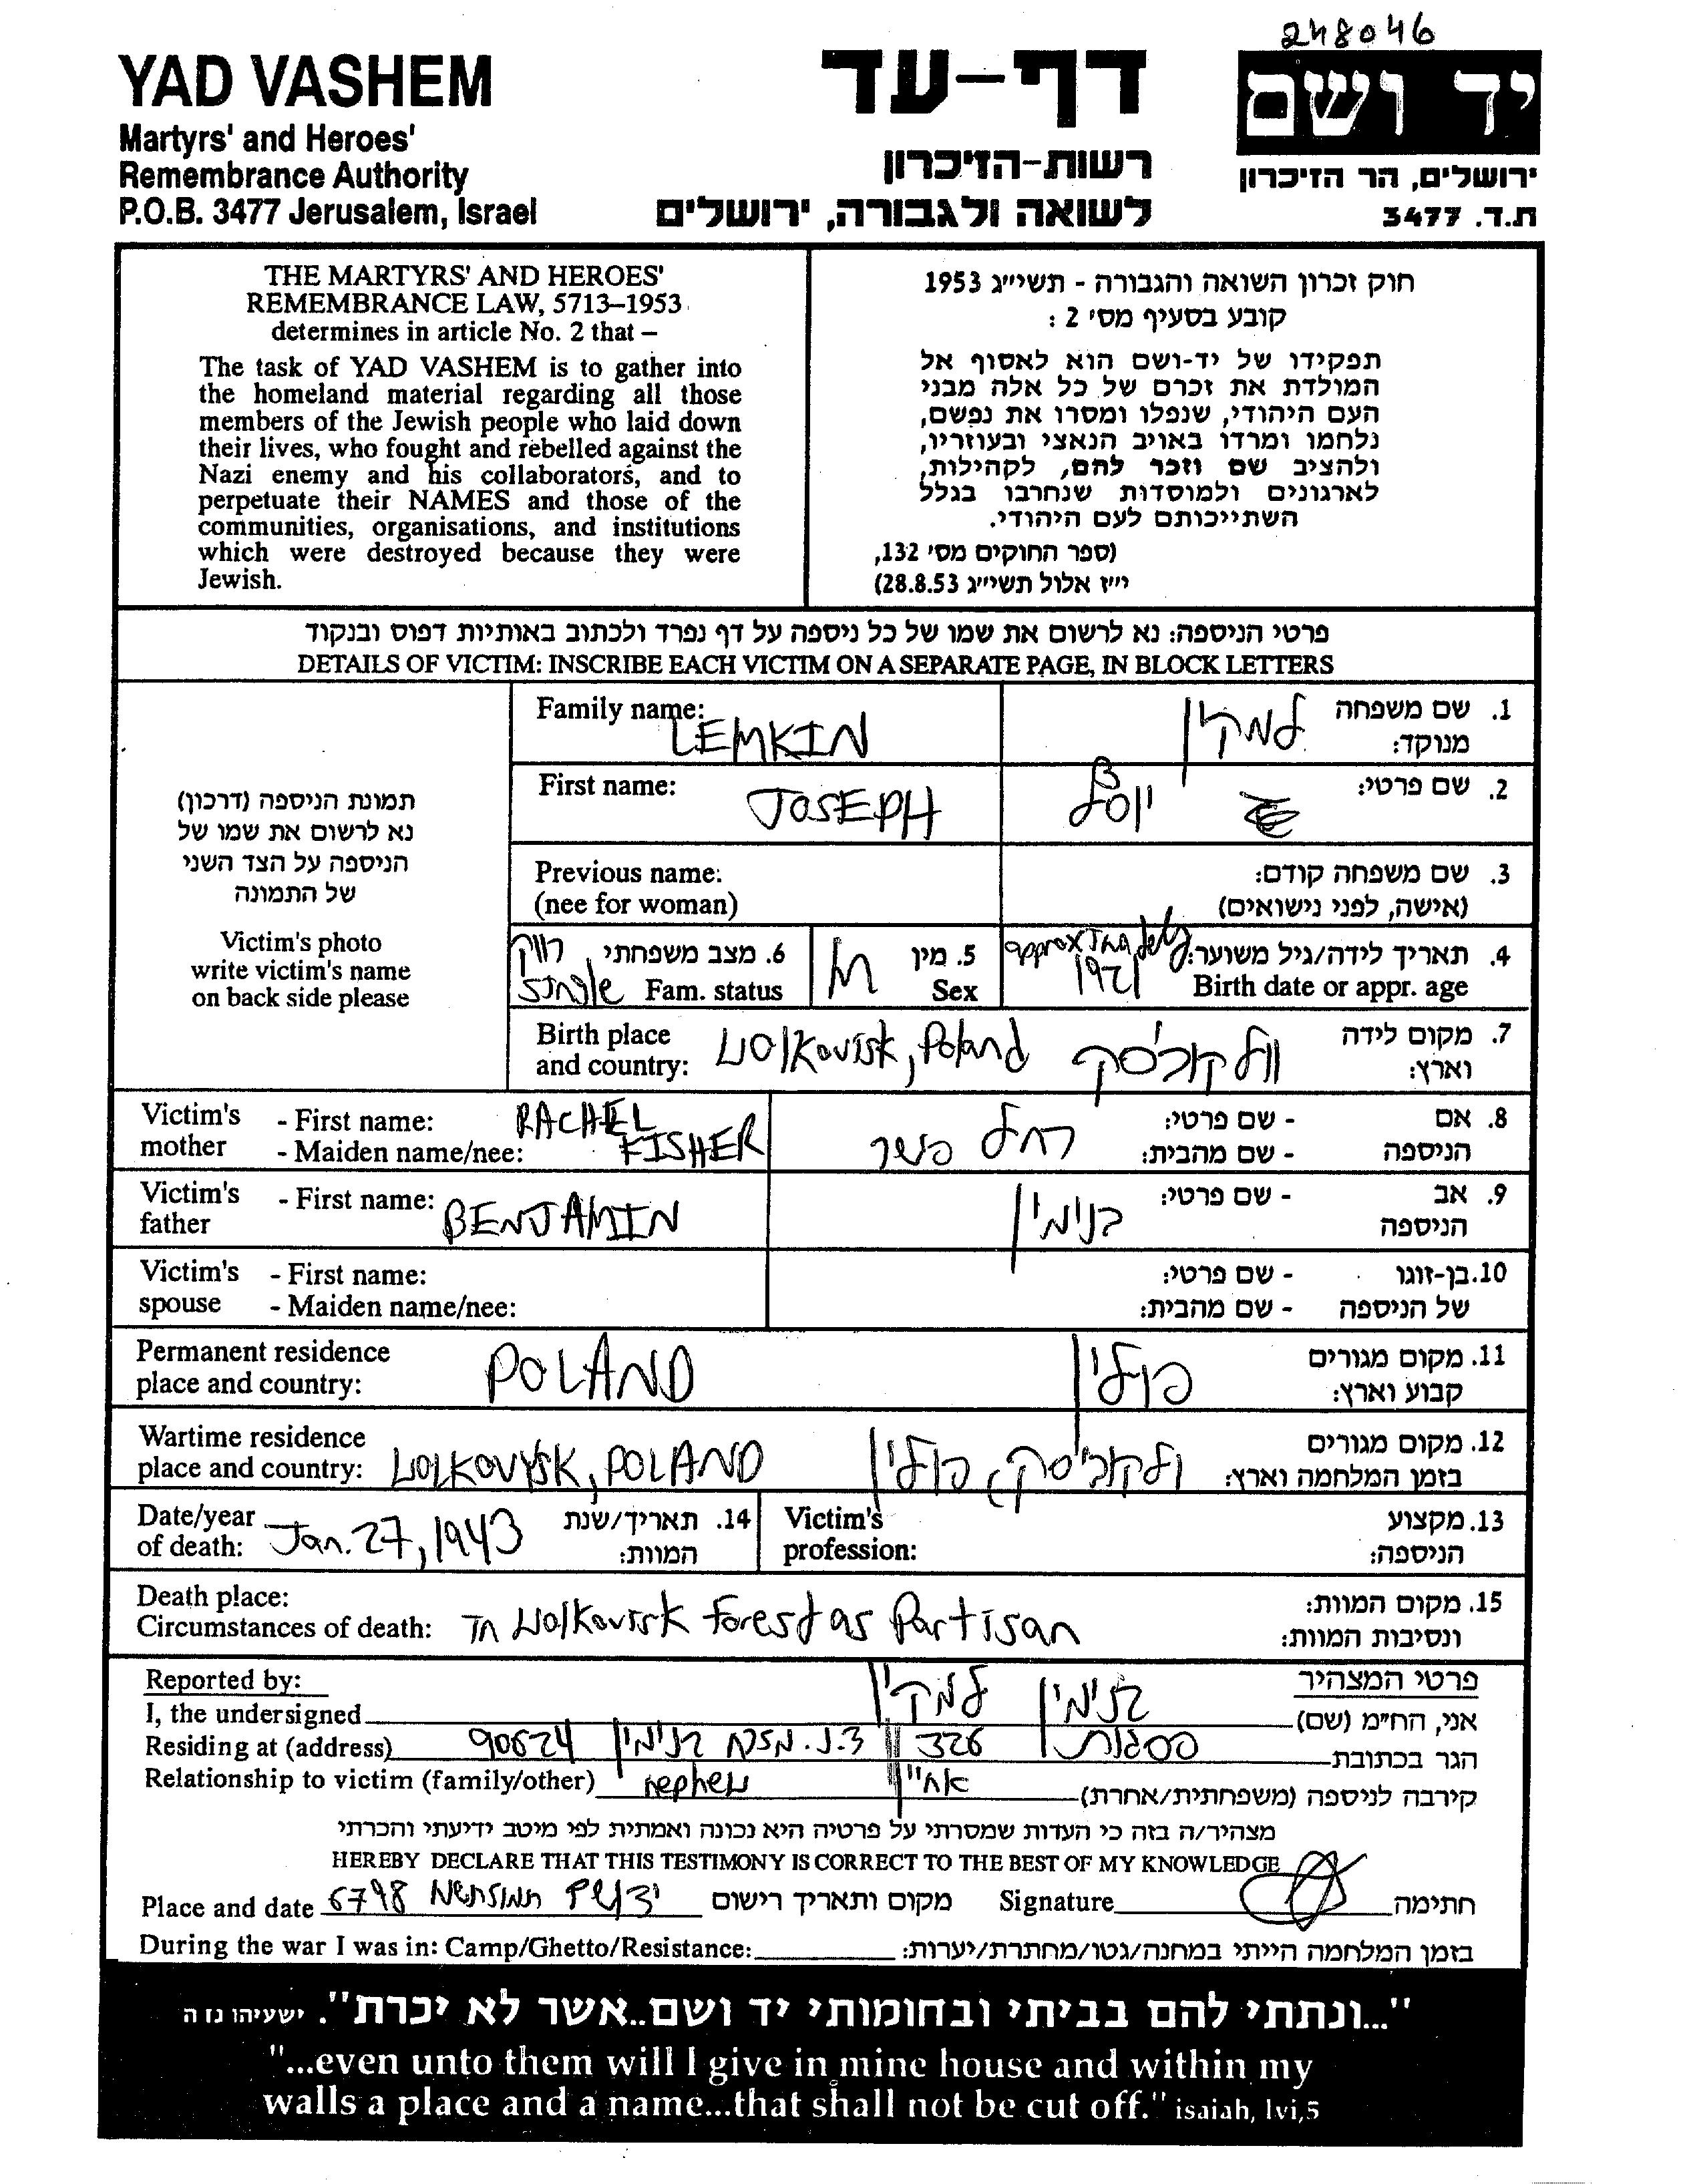 248046
YAD VASHEM
Martyrs' and Heroes'
Remembrance Authority
P.O.B. 3477 Jerusalem, Israel
דף-עד
רשות-הזיכרון
לשואה ולגבורה, ירושלים
יד ושם
ירושלים, הר הזיכרון
ת.ד. 3477
THE MARTYRS' AND HEROES'
REMEMBRANCE LAW, 5713–1953
determines in article No. 2 that –
The task of YAD VASHEM is to gather into
the homeland material regarding all those
members of the Jewish people who laid down
their lives, who fought and rebelled against the
Nazi enemy and his collaborators, and to
perpetuate their NAMES and those of the
communities, organisations, and institutions
which were destroyed because they were
Jewish.
חוק זכרון השואה והגבורה - תשי״ג 1953
קובע בסעיף מס' 2 :
תפקידו של יד-ושם הוא לאסוף אל
המולדת את זכרם של כל אלה מבני
העם היהודי, שנפלו ומסרו את נפשם,
נלחמו ומרדו באויב הנאצי ובעוזריו,
ולהציב שם וזכר להם, לקהילות,
לארגונים ולמוסדות שנחרבו בגלל
השתייכותם לעם היהודי.
(ספר החוקים מס' 132,
י״ז אלול תשי״ג 28.8.53)
פרטי הניספה: נא לרשום את שמו של כל ניספה על דף נפרד ולכתוב באותיות דפוס ובנקוד
DETAILS OF VICTIM: INSCRIBE EACH VICTIM ON A SEPARATE PAGE, IN BLOCK LETTERS
תמונת הניספה (דרכון)
נא לרשום את שמו של
הניספה על הצד השני
של התמונה
Victim's photo
write victim's name
on back side please
Family name: LEMKIN
1. שם משפחה מנוקד: למקין
First name: JOSEPH
2. שם פרטי: יוסף
Previous name:
(nee for woman)
3. שם משפחה קודם:
(אישה, לפני נישואים)
6. מצב משפחתי רווק
Fam. status single
5. מין M
Sex
4. תאריך לידה/גיל משוער: approximately
Birth date or appr. age 1921
Birth place
and country: Wolkovisk, Poland
7. מקום לידה
וארץ: וולקוביסק
Victim's mother - First name: RACHEL
- Maiden name/nee: FISHER
8. אם הניספה - שם פרטי: רחל
- שם מהבית: פישר
Victim's father - First name: BENJAMIN
9. אב הניספה - שם פרטי: בנימין
Victim's spouse - First name:
- Maiden name/nee:
10. בן-זוגו של הניספה - שם פרטי:
- שם מהבית:
Permanent residence
place and country: POLAND
11. מקום מגורים
קבוע וארץ: פולין
Wartime residence
place and country: WOLKOVYSK, POLAND
12. מקום מגורים
בזמן המלחמה וארץ: ולקוביסק, פולין
Date/year
of death: Jan. 27, 1943
14. תאריך/שנת
המוות:
Victim's
profession:
13. מקצוע
הניספה:
Death place:
Circumstances of death: In Wolkovisk Forest as Partisan
15. מקום המוות:
ונסיבות המוות:
Reported by:
פרטי המצהיר
I, the undersigned
אני, הח״מ (שם) בנימין למקין
Residing at (address)
הגר בכתובת פסגות 326 ד.נ. מזרח בנימין 90624
Relationship to victim (family/other) nephew
קירבה לניספה (משפחתית/אחרת) אחיין
מצהיר/ה בזה כי העדות שמסרתי על פרטיה היא נכונה ואמתית לפי מיטב ידיעתי והכרתי
HEREBY DECLARE THAT THIS TESTIMONY IS CORRECT TO THE BEST OF MY KNOWLEDGE
Place and date
מקום ותאריך רישום
Signature
חתימה
During the war I was in: Camp/Ghetto/Resistance:
בזמן המלחמה הייתי במחנה/גטו/מחתרת/יערות:
"...ונתתי להם בביתי ובחומותי יד ושם..אשר לא יכרת". ישעיהו נו ה
"...even unto them will I give in mine house and within my
walls a place and a name...that shall not be cut off." isaiah, lvi,5